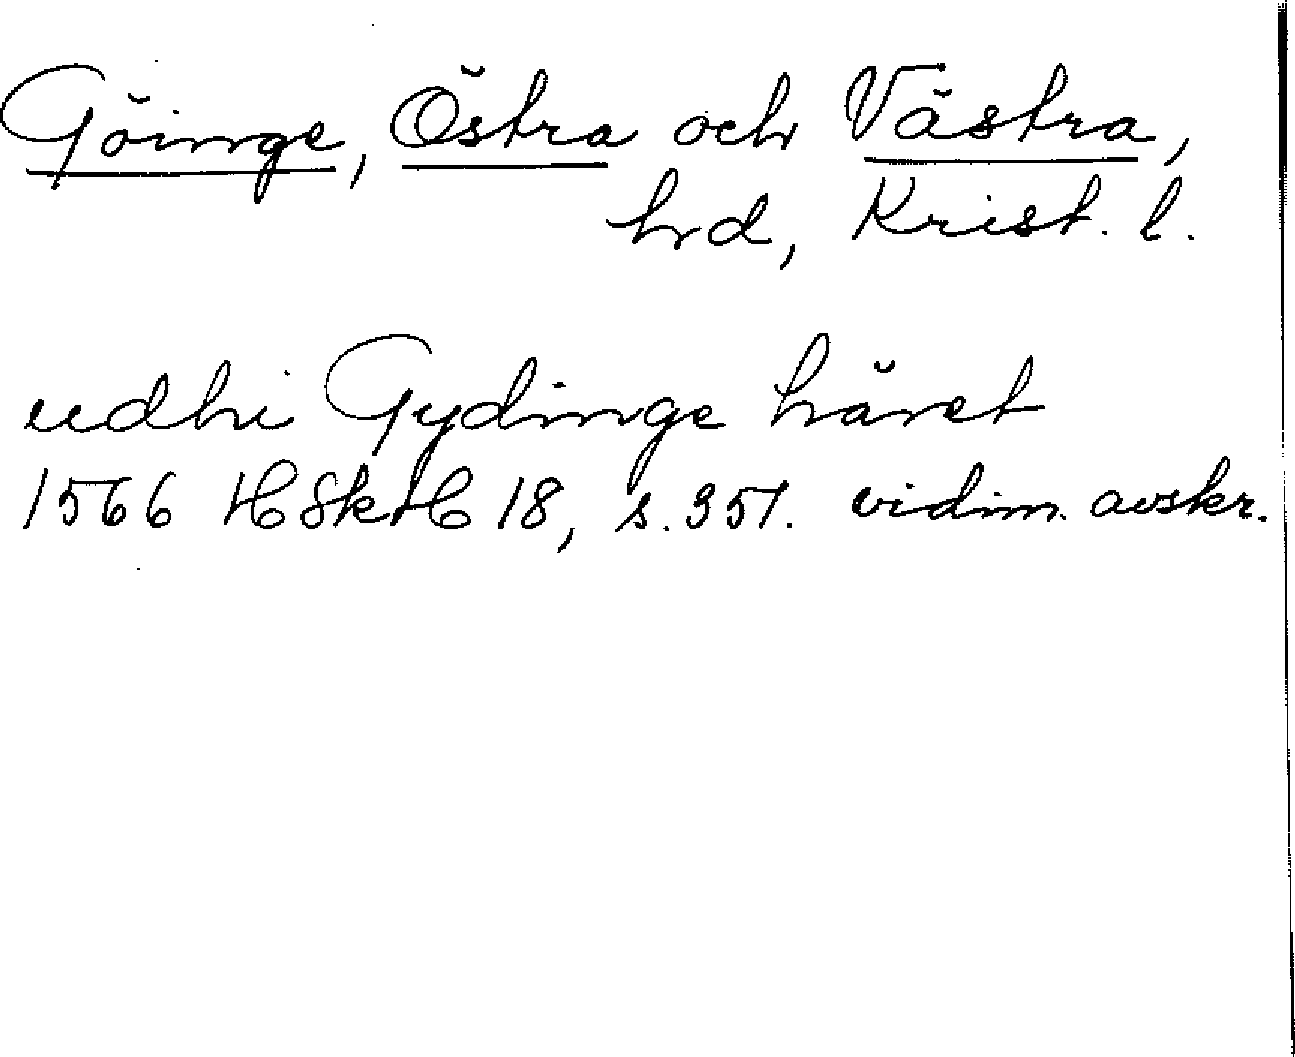 Göinge, Östra och Västra,
hrd, Krist. l.
udhi Gydinge häret
1566 HSkH 18, s. 351. vidim. avskr.